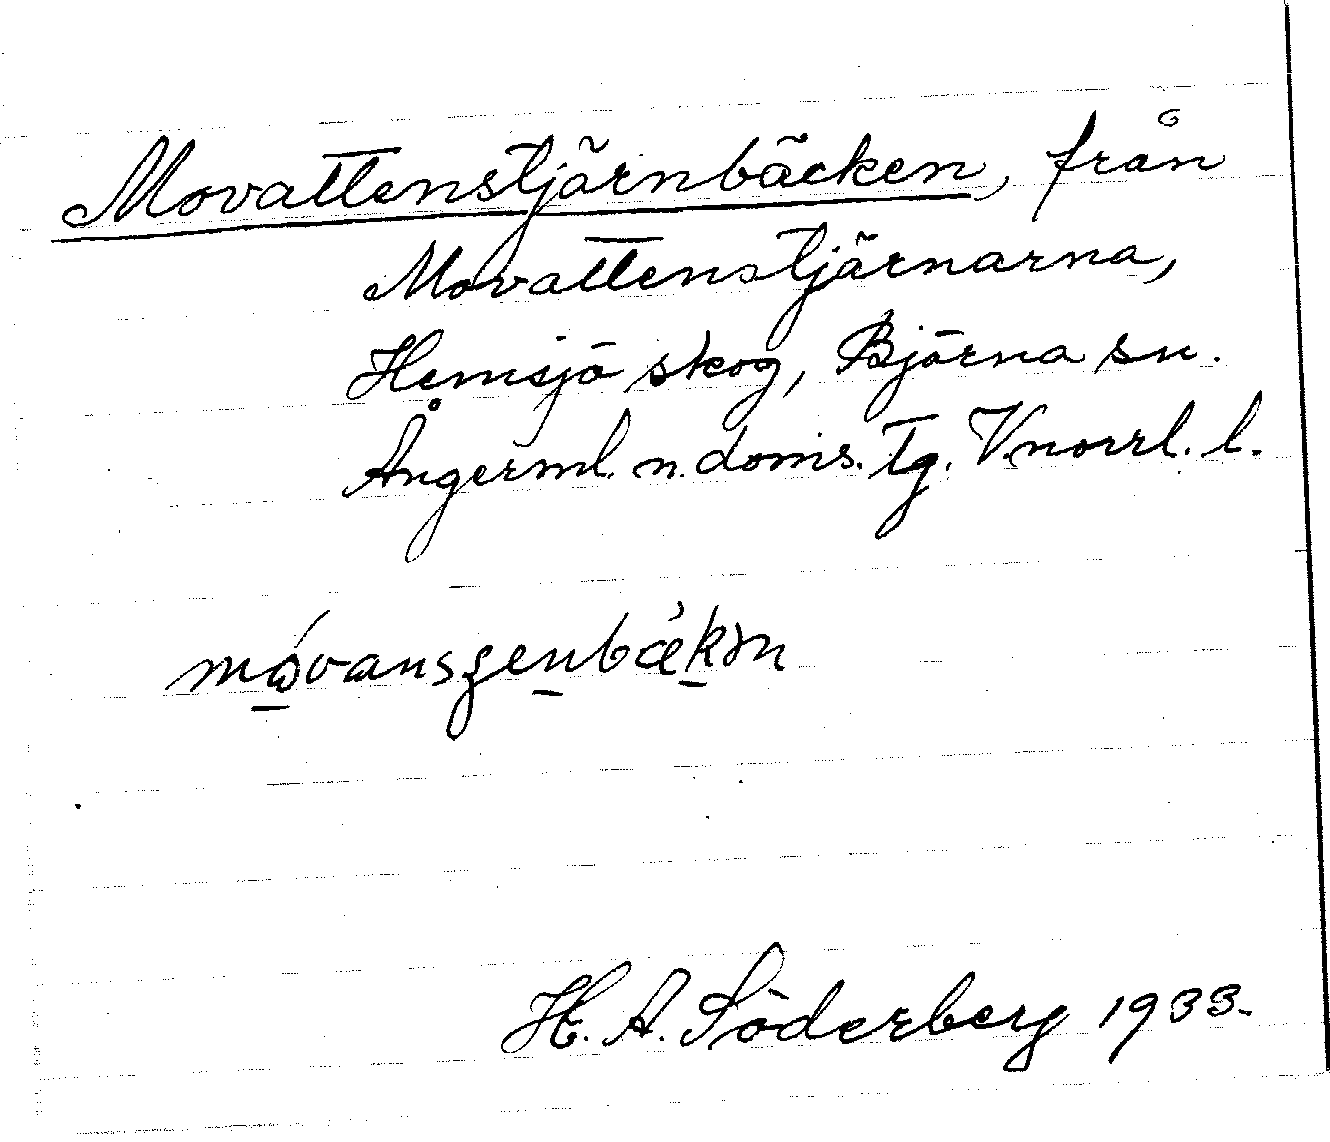 Movattenstjärnbäcken, från
Movattenstjärnarna,
Hemsjö skog, Björna sn.
Ångerml. n. doms. tg. Vnorrl. l.
H. A. Söderberg 1933.